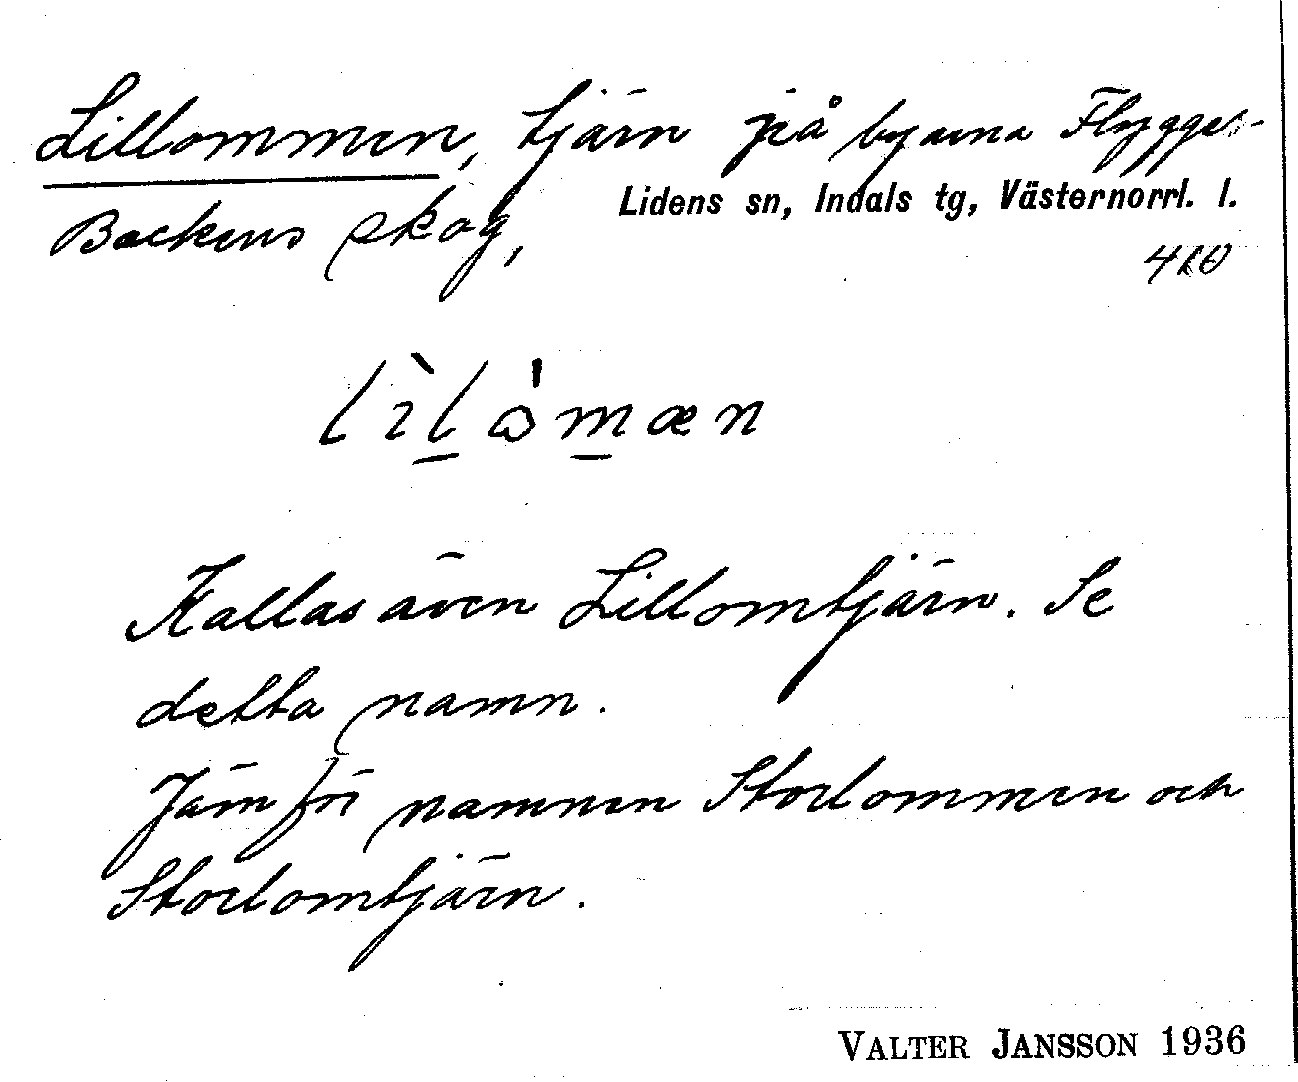 Lillommen, tjärn på byarna Flygge-
Lidens sn, Indals tg, Västernorrl. l.
Backens skog,
410
Kallas även Lillomtjärn. Se
detta namn.
Jämför namnen Storlommen och
Storlomtjärn.
VALTER JANSSON 1936